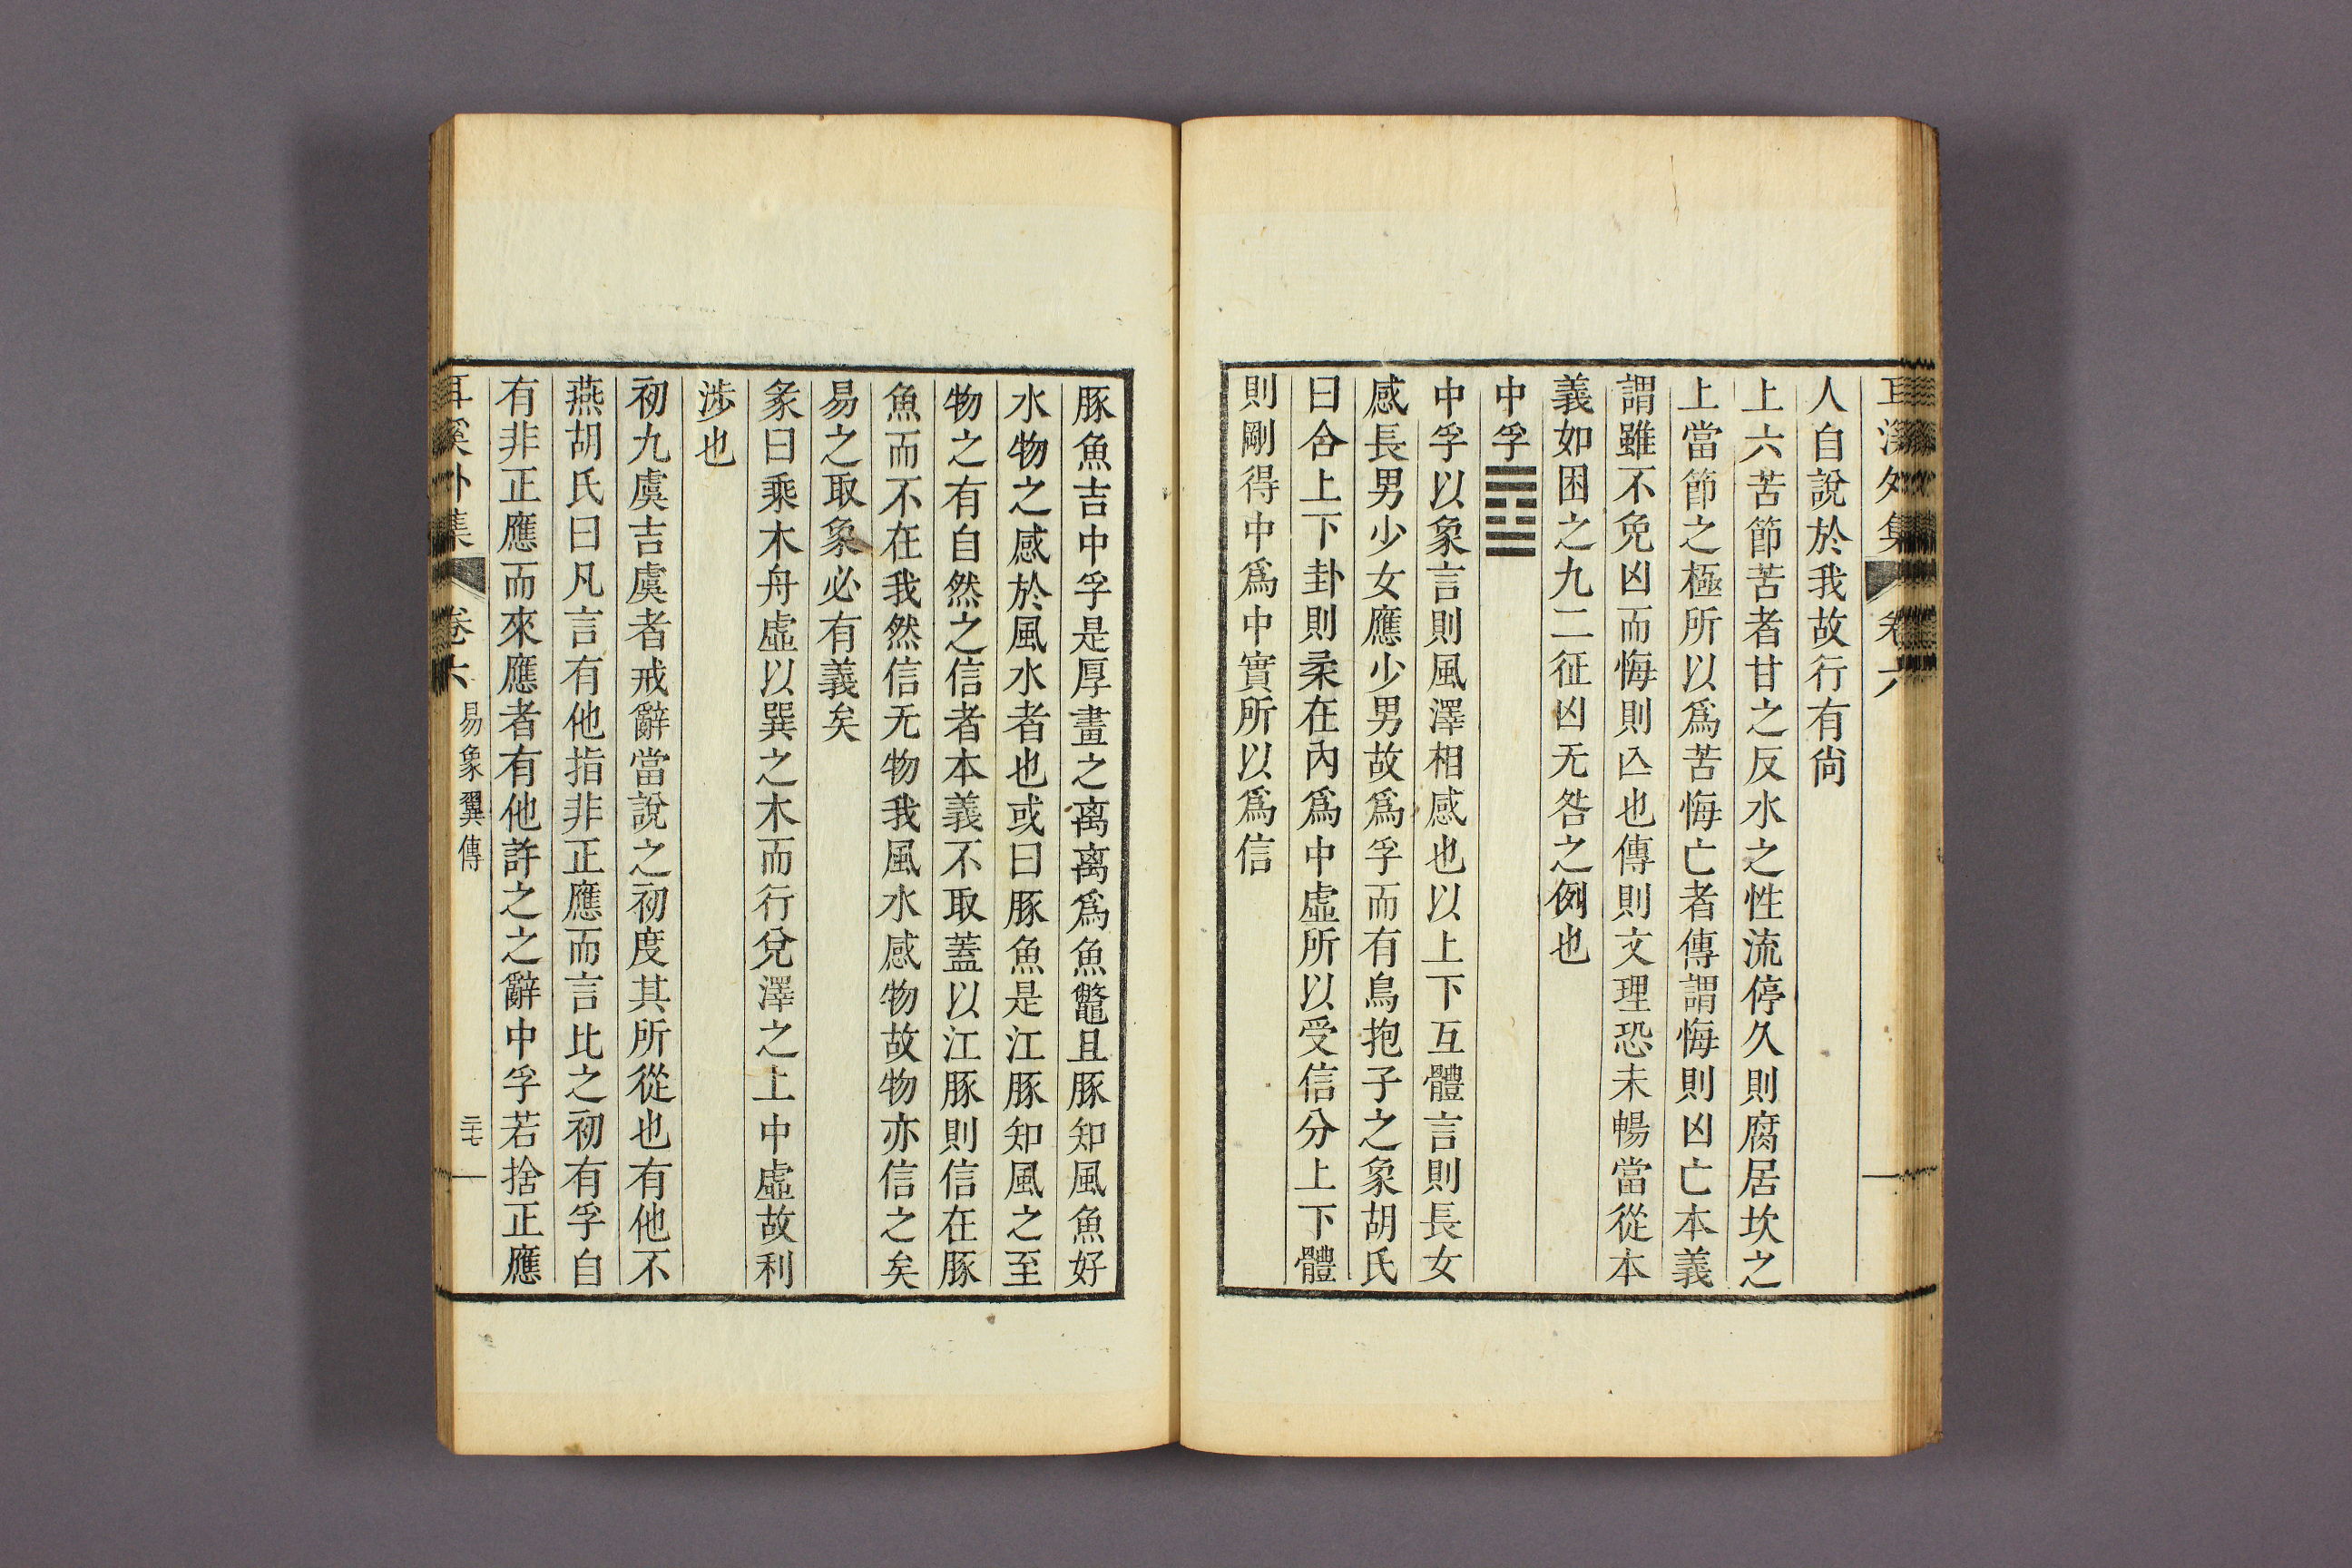 耳溪外集 卷六
人自說於我故行有尙
上六苦節苦者甘之反水之性流停久則腐居坎之
上當節之極所以爲苦悔亡者傳謂悔則凶亡本義
謂雖不免凶而悔則亾也傳則文理恐未暢當從本
義如困之九二征凶无咎之例也
中孚䷼
中孚以象言則風澤相感也以上下互體言則長女
感長男少女應少男故爲孚而有鳥抱子之象胡氏
曰合上下卦則柔在內爲中虛所以受信分上下體
則剛得中爲中實所以爲信
豚魚吉中孚是厚畫之离离爲魚鼈且豚知風魚好
水物之感於風水者也或曰豚魚是江豚知風之至
物之有自然之信者本義不取蓋以江豚則信在豚
魚而不在我然信无物我風水感物故物亦信之矣
易之取象必有義矣
彖曰乘木舟虛以巽之木而行兌澤之上中虛故利
涉也
初九虞吉虞者戒辭當說之初度其所從也有他不
燕胡氏曰凡言有他指非正應而言比之初有孚自
有非正應而來應者有他許之之辭中孚若捨正應
耳溪外集 卷六 易象翼傳 二十七